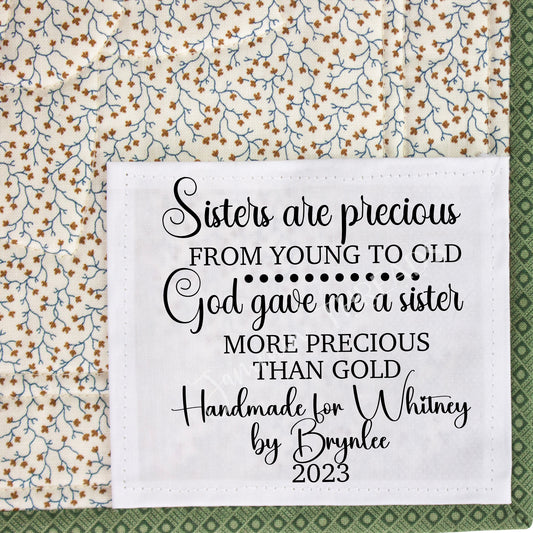 Sisters are precious
FROM YOUNG TO OLD
God gave me a sister
MORE PRECIOUS
THAN GOLD
Handmade for Whitney
by Brynlee
2023